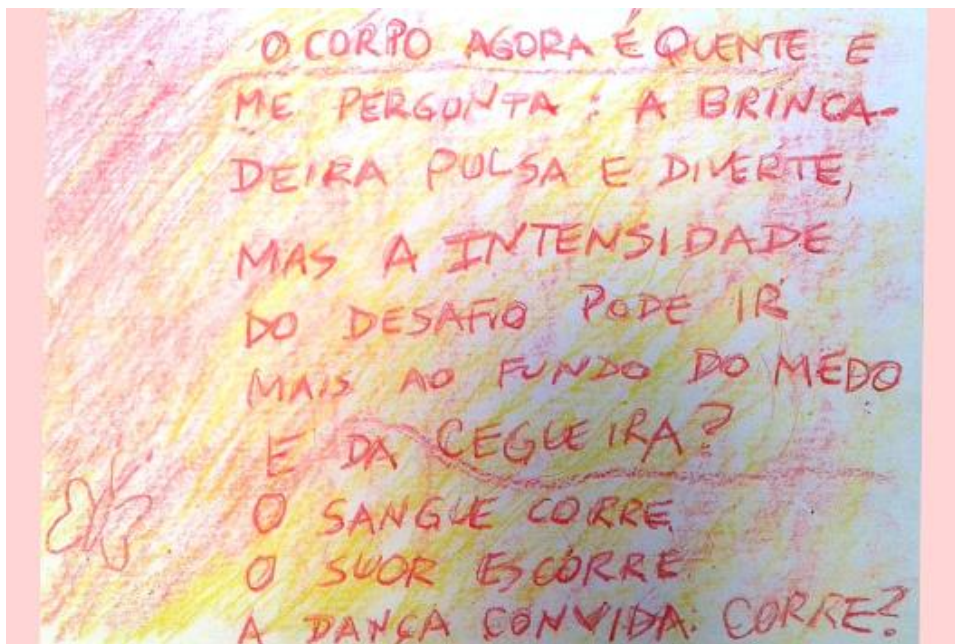 O CORPO AGORA É QUENTE E
ME PERGUNTA: A BRINCA-
DEIRA PULSA E DIVERTE,
MAS A INTENSIDADE
DO DESAFIO PODE IR
MAIS AO FUNDO DO MEDO
E DA CEGUEIRA?
O SANGUE CORRE
O SUOR ESCORRE
A DANÇA CONVIDA. CORRE?